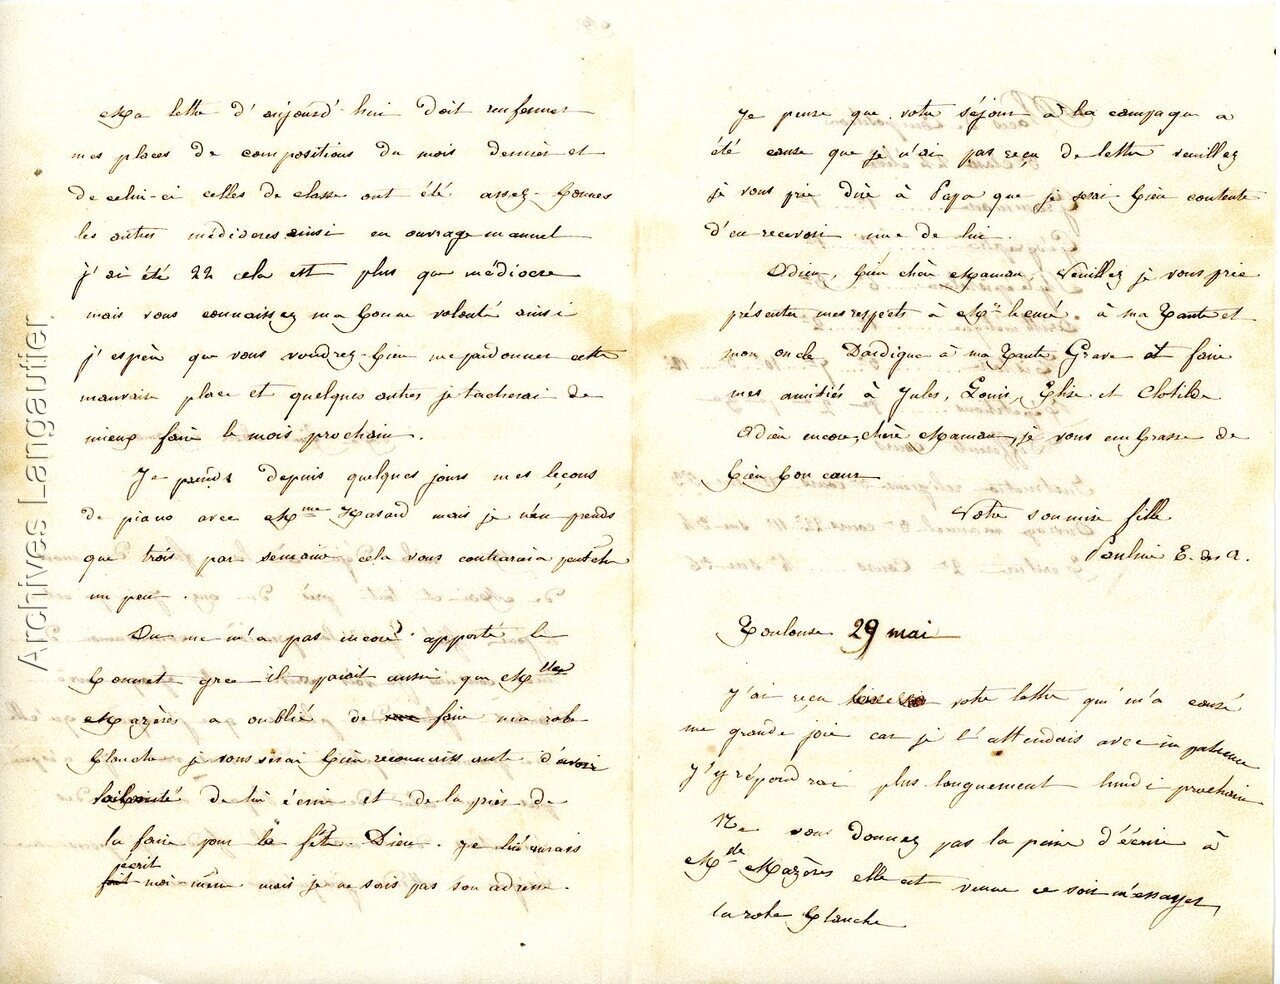 Ma lettre d'aujourd'hui doit renfermer
mes places de compositions du mois dernier et
de celui-ci celles de classe ont été assez-bonnes
les autres médiocres ainsi en ouvrage manuel
j'ai été 22 cela est plus que médiocre
mais vous connaissez ma bonne volonté ainsi
j'espère que vous voudrez-bien me pardonner cette
mauvaise place et quelques autres je tacherai de
mieux faire le mois prochain.
Je prends depuis quelques jours mes leçons
de piano avec Mme Hasard mais je n'en prends
que trois par semaine cela vous contrariera peut-être
un peu.
On ne m'a pas encore apporté le
bonnet grec il parait aussi que Mlle
Mazères a oublié de faire ma robe
blanche je vous serai bien reconnaissante d'avoir
la bonté de lui écrire et de la prier de
la faire pour la fête-Dieu. Je lui aurais
écrit
fait moi-même mais je ne sais pas son adresse.
Je pense que votre séjour à la campagne a
été cause que je n'ai pas reçu de lettre veuillez
je vous prie dire à Papa que je serai bien contente
d'en recevoir une de lui.
Adieu, bien chère Maman, Veuillez je vous prie
présenter mes respects à Mr le curé à ma Tante et
mon oncle Dardigue à ma Tante Grave et faire
mes amitiés à Jules, Louis, Elise et Clotilde
Adieu encore, chère Maman, je vous embrasse de
bien bon cœur
Votre soumise fille
Pauline E. des A.
Toulouse 29 mai
J'ai reçu votre lettre qui m'a causé
une grande joie car je l'attendais avec impatience
J'y répondrai plus longuement lundi prochain
Ne vous donnez pas la peine d'écrire à
Mde Mazères elle est venue ce soir m'essayer
la robe blanche
Archives Langautier